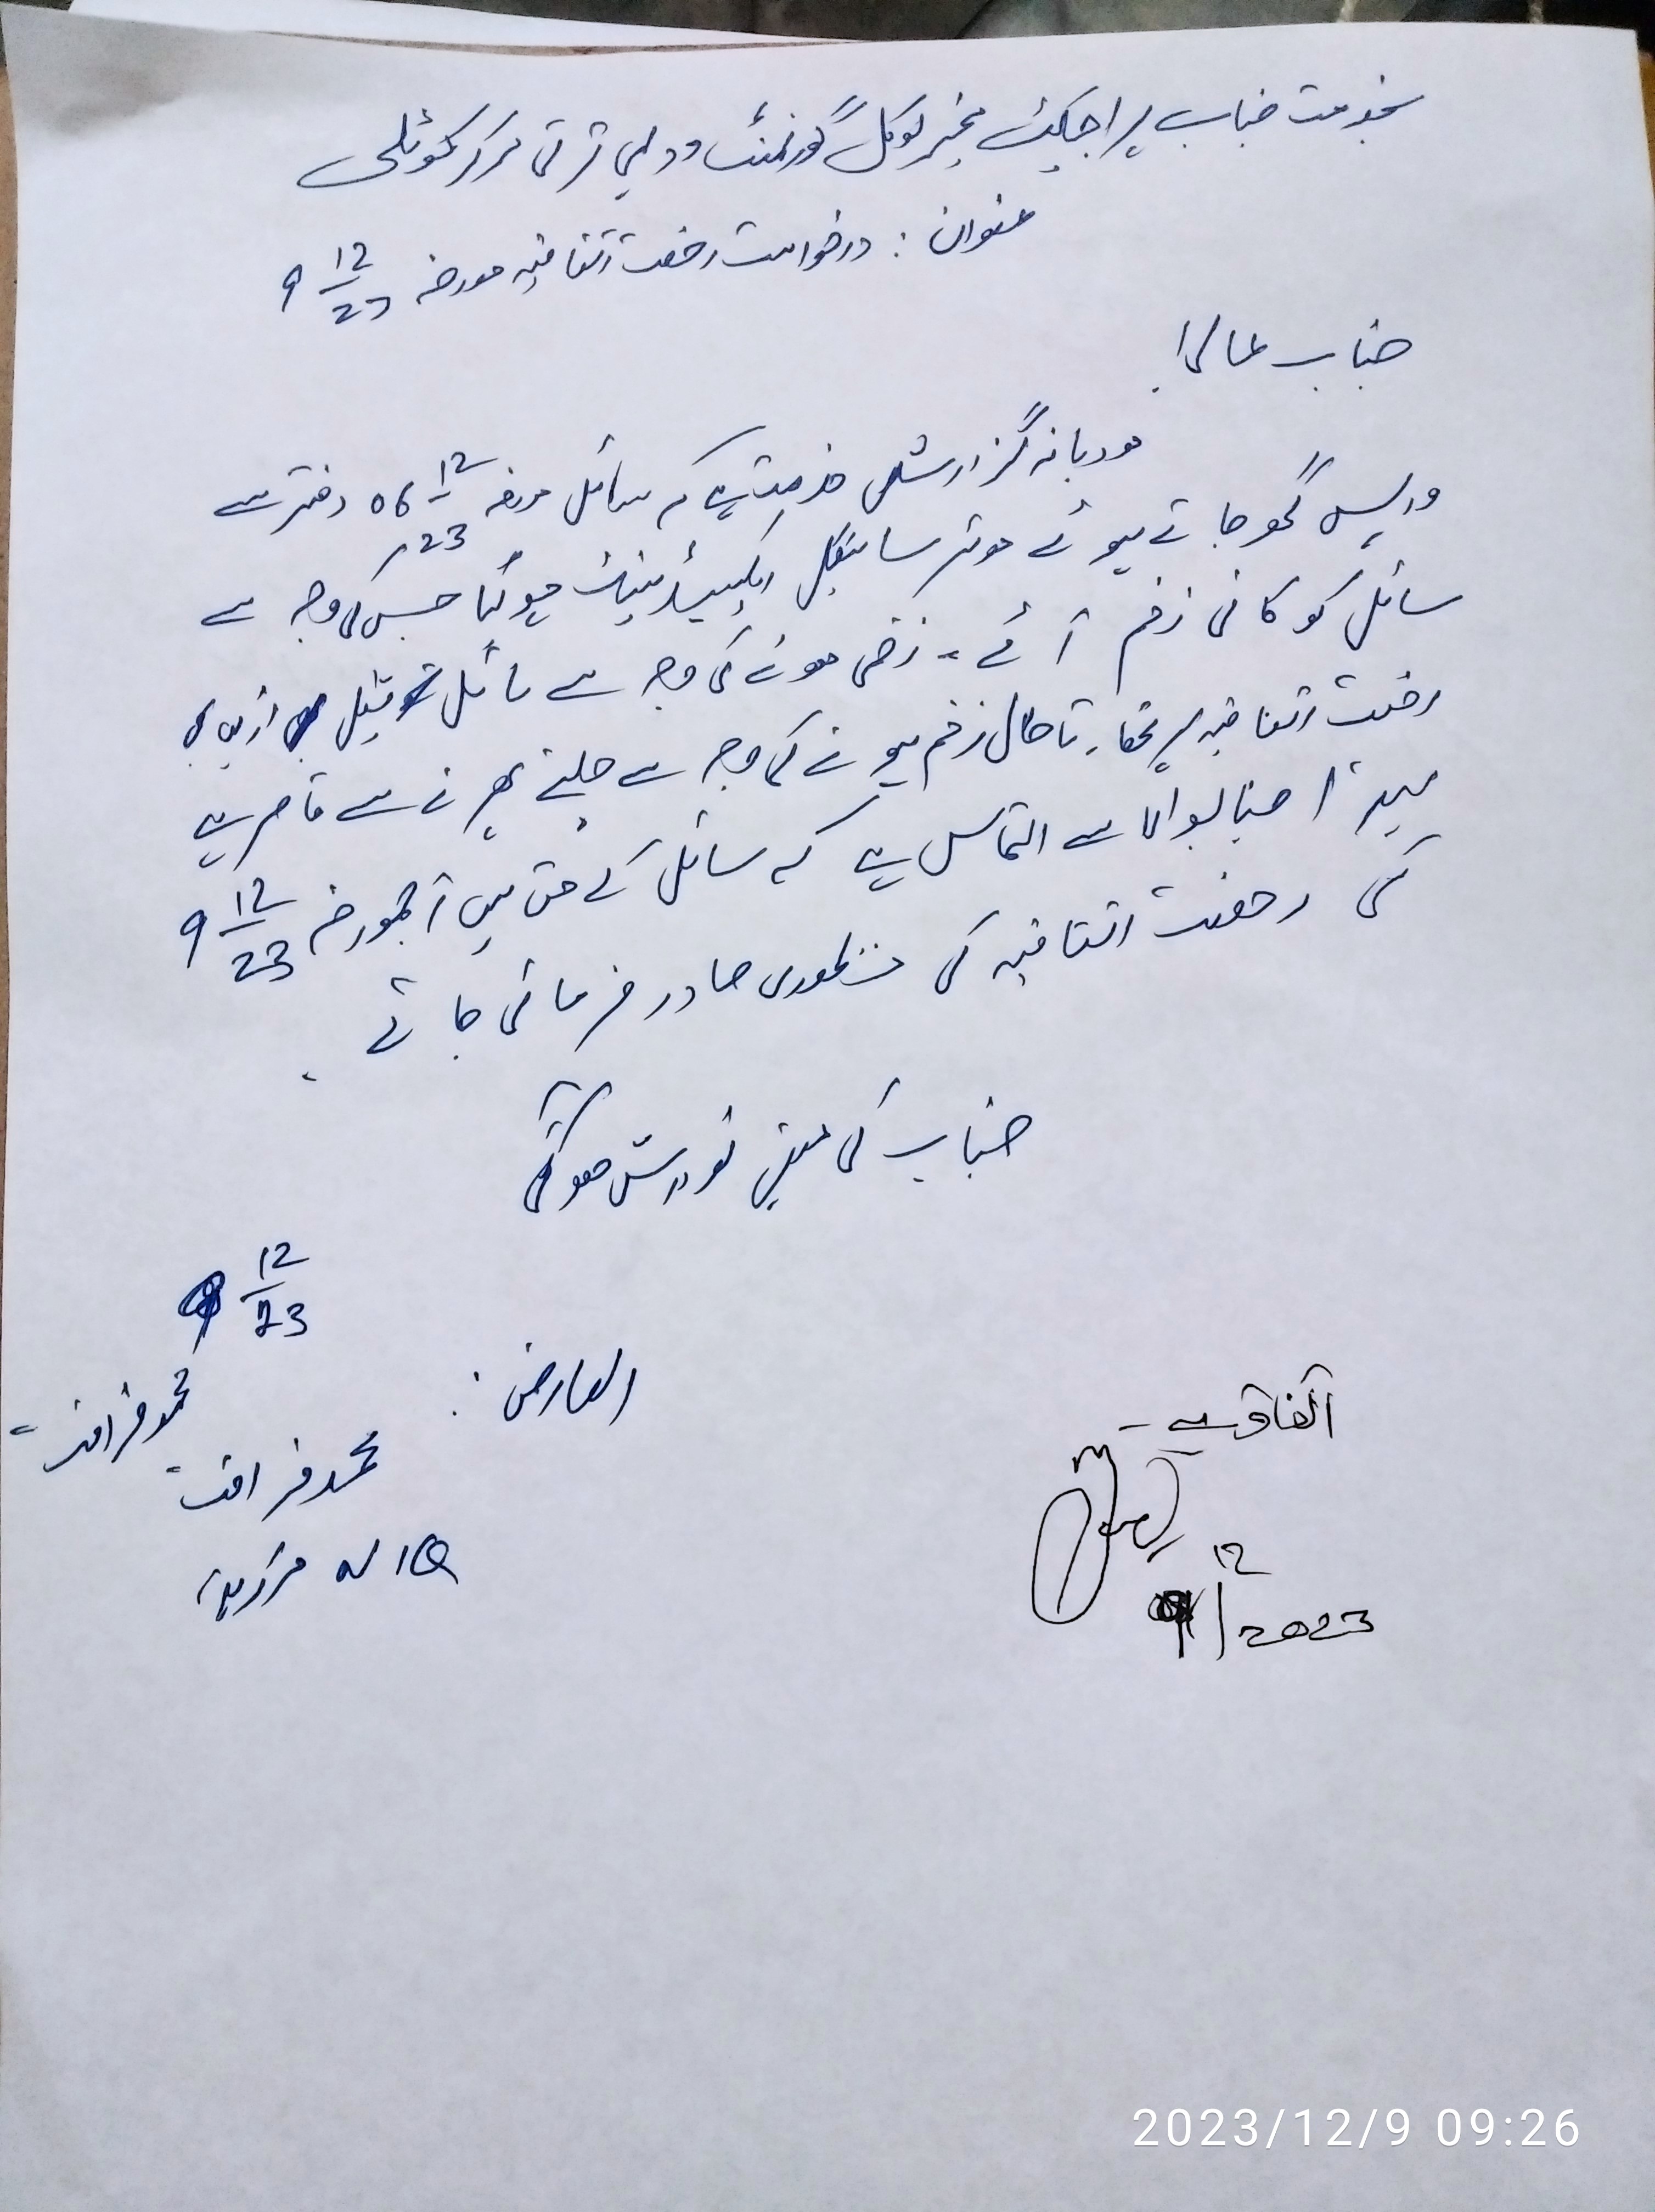 بخدمت جناب پراجیکٹ منیجر لوکل گورنمنٹ و دیہی ترقی مرکز کوٹلی
عنوان : درخواست رخصت اتفاقیہ مورخہ 9 12/23
جناب عالی!
مودبانہ گزارش خدمت ہے کہ سائل مورخہ 06 12/23 دفتر سے
واپس گھر جاتے ہوئے موٹر سائیکل ایکسیڈینٹ ہو گیا جس کی وجہ سے
سائل کو کافی زخم آئے۔ زخمی ہونے کی وجہ سے سائل قبل ازیں بھی
رخصت اتفاقیہ پر تھا۔ تاحال زخم ہونے کی وجہ سے چلنے پھرنے سے قاصر ہے
لہذا جناب والا سے التماس ہے کہ سائل کے حق میں آج مورخہ 9 12/23
کی رخصت اتفاقیہ کی منظوری صادر فرمائی جائے
جناب کی عین نوازش ہوگی
9 12/23
العارض :
محمد فراقت
محمد فراقت
اتفاق ہے -
12
9/2023
2023/12/9 09:26